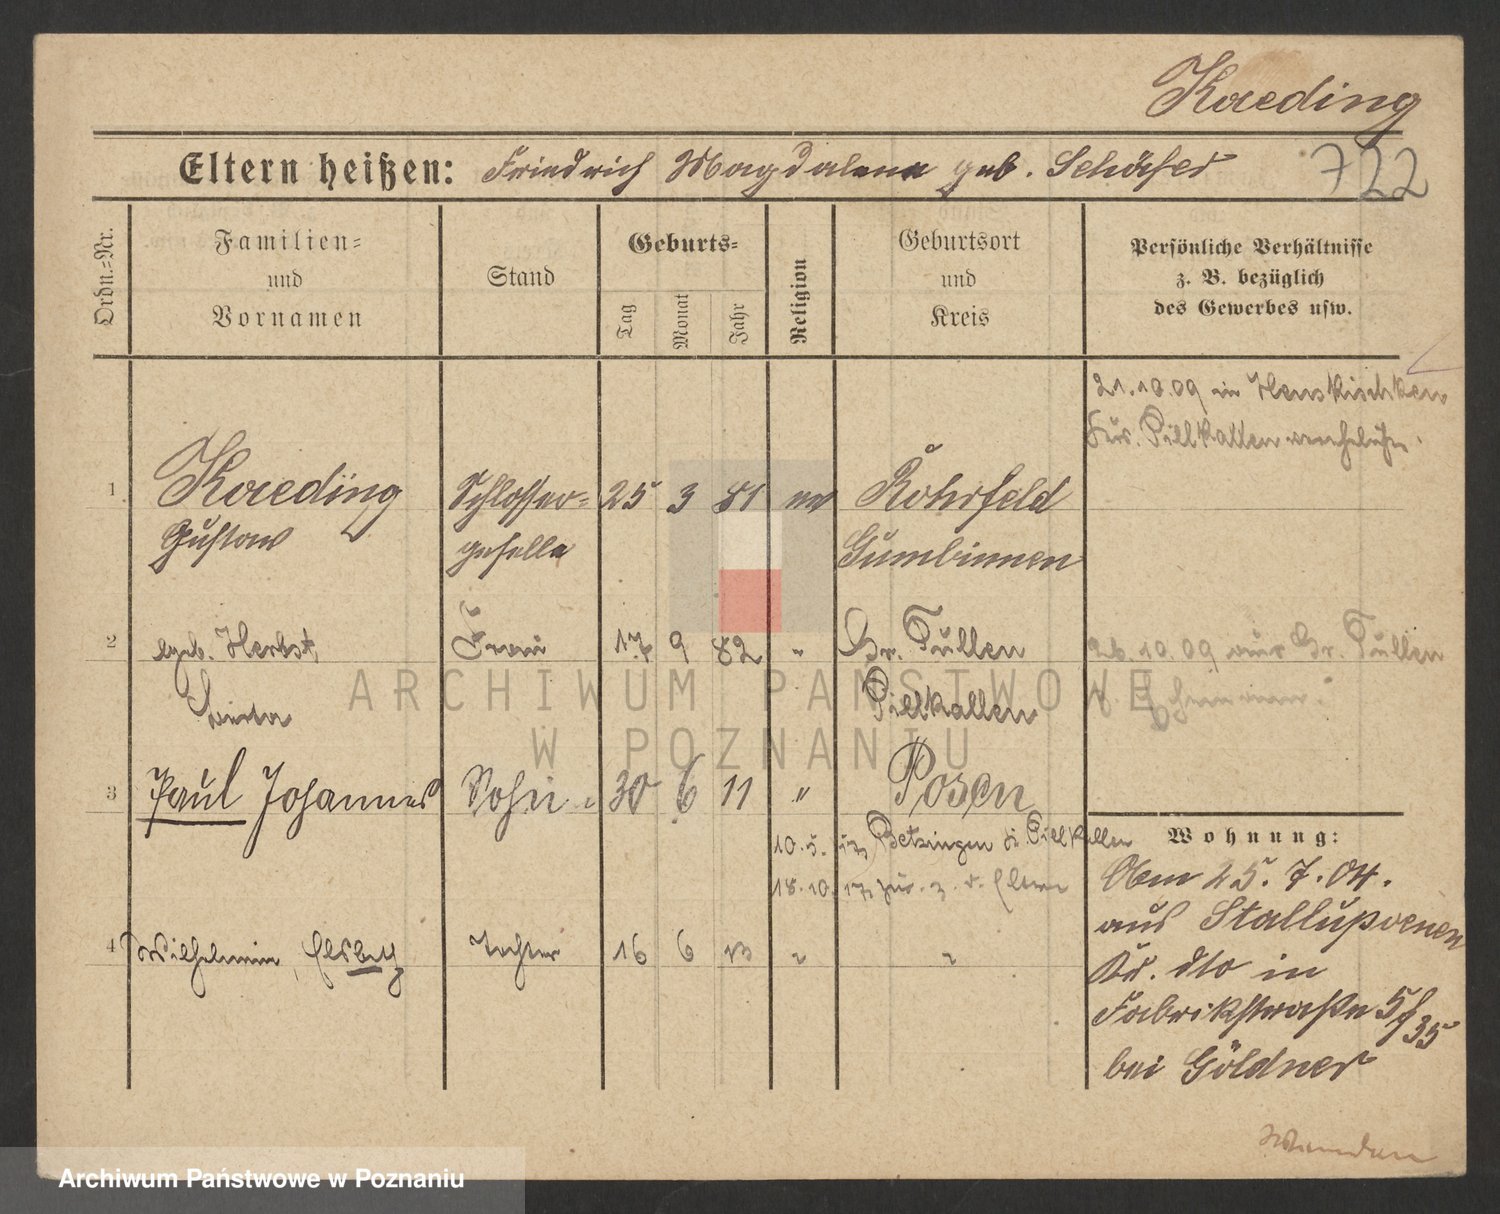 Kaeding
Eltern heißen: Friedrich Magdalena geb. Schäfer 722
Ordn.=Nr.
Familien=
und
Vornamen
Stand
Geburts=
Tag
Monat
Jahr
Religion
Geburtsort
und
Kreis
Persönliche Verhältnisse
z. B. bezüglich
des Gewerbes usw.
21.10.09 in
Krs. Pillkallen
1 Kaeding Schlosser= 25 3 81 ev Rohrfeld
Gustav geselle Gumbinnen
2 geb. Herbst, Frau 17 9 82 " Gr. Tullen 26.10.09 aus Gr. Tullen
Pillkallen
3 Paul Johannes Sohn 30 6 11 " Posen
10.5. 17 Pillkallen
18.10.17 zur. z. d. Eltern
4 Wilhelmine, Elsbeth Tochter 16 6 13 " "
Wohnung:
Abm 25.7.04.
aus Stallupoenen
Kr. dto in
Fabrikstraße 5/35
bei Göldner
ARCHIWUM PAŃSTWOWE
W POZNANIU
Archiwum Państwowe w Poznaniu